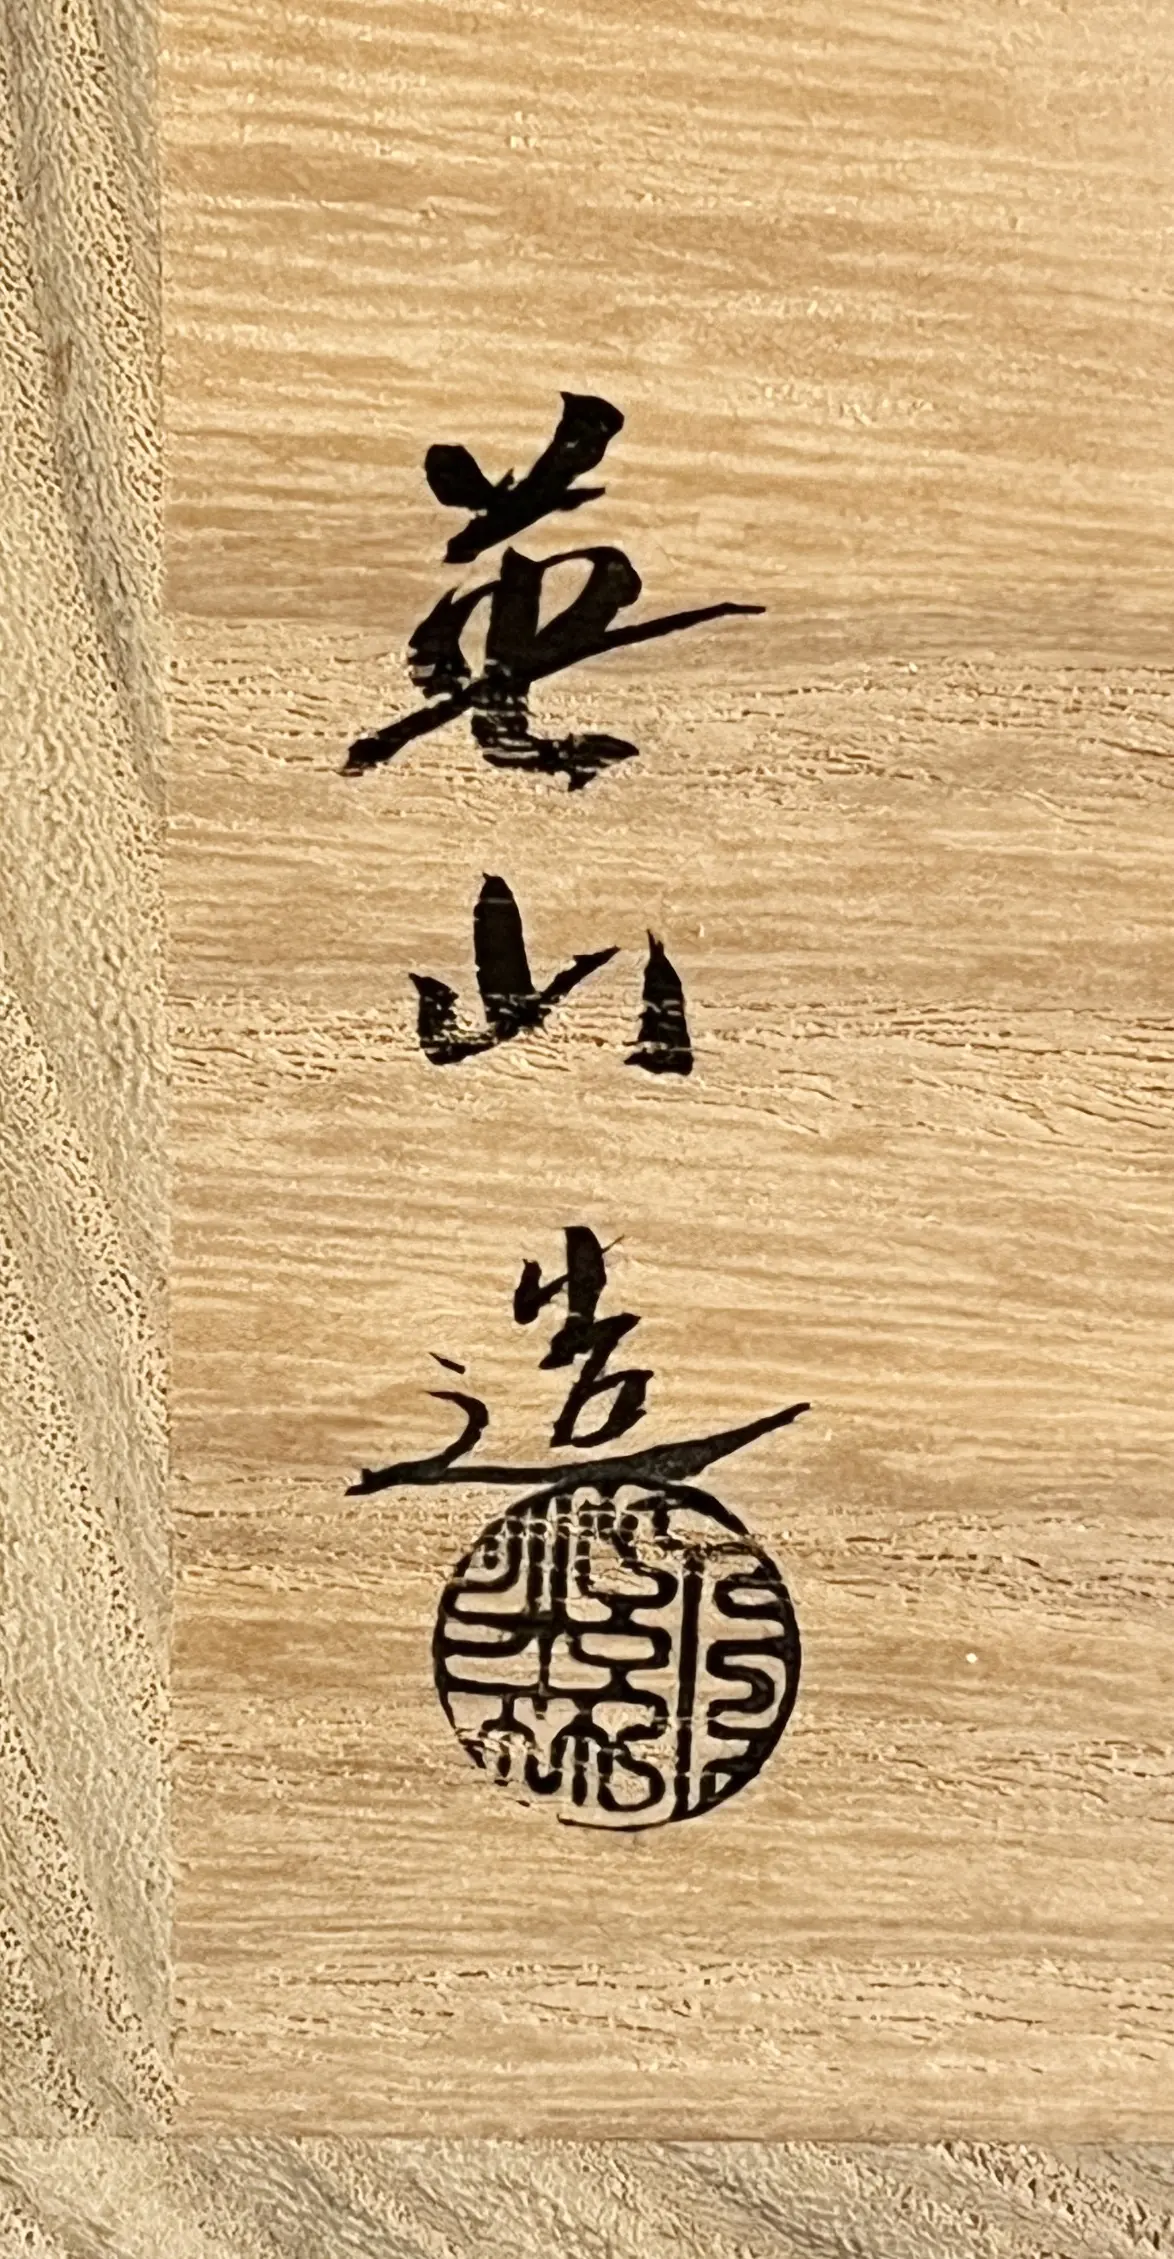 英山造